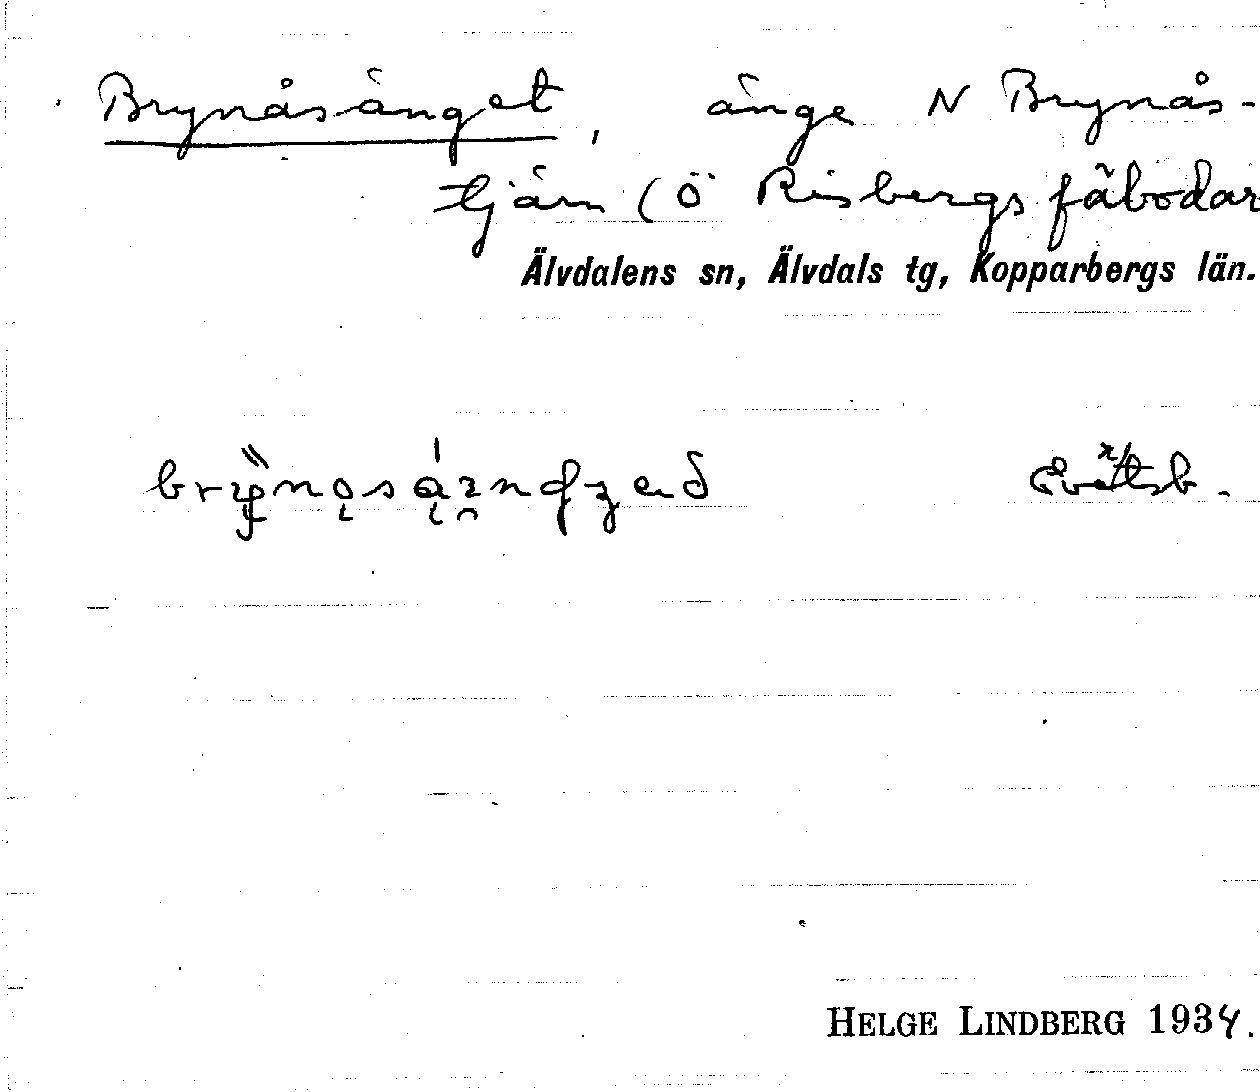 Brynåsänget, änge N Brynås-
tjärn (Ö Risbergs fäbodar
Älvdalens sn, Älvdals tg, Kopparbergs län.
Evertsb.
HELGE LINDBERG 1934.